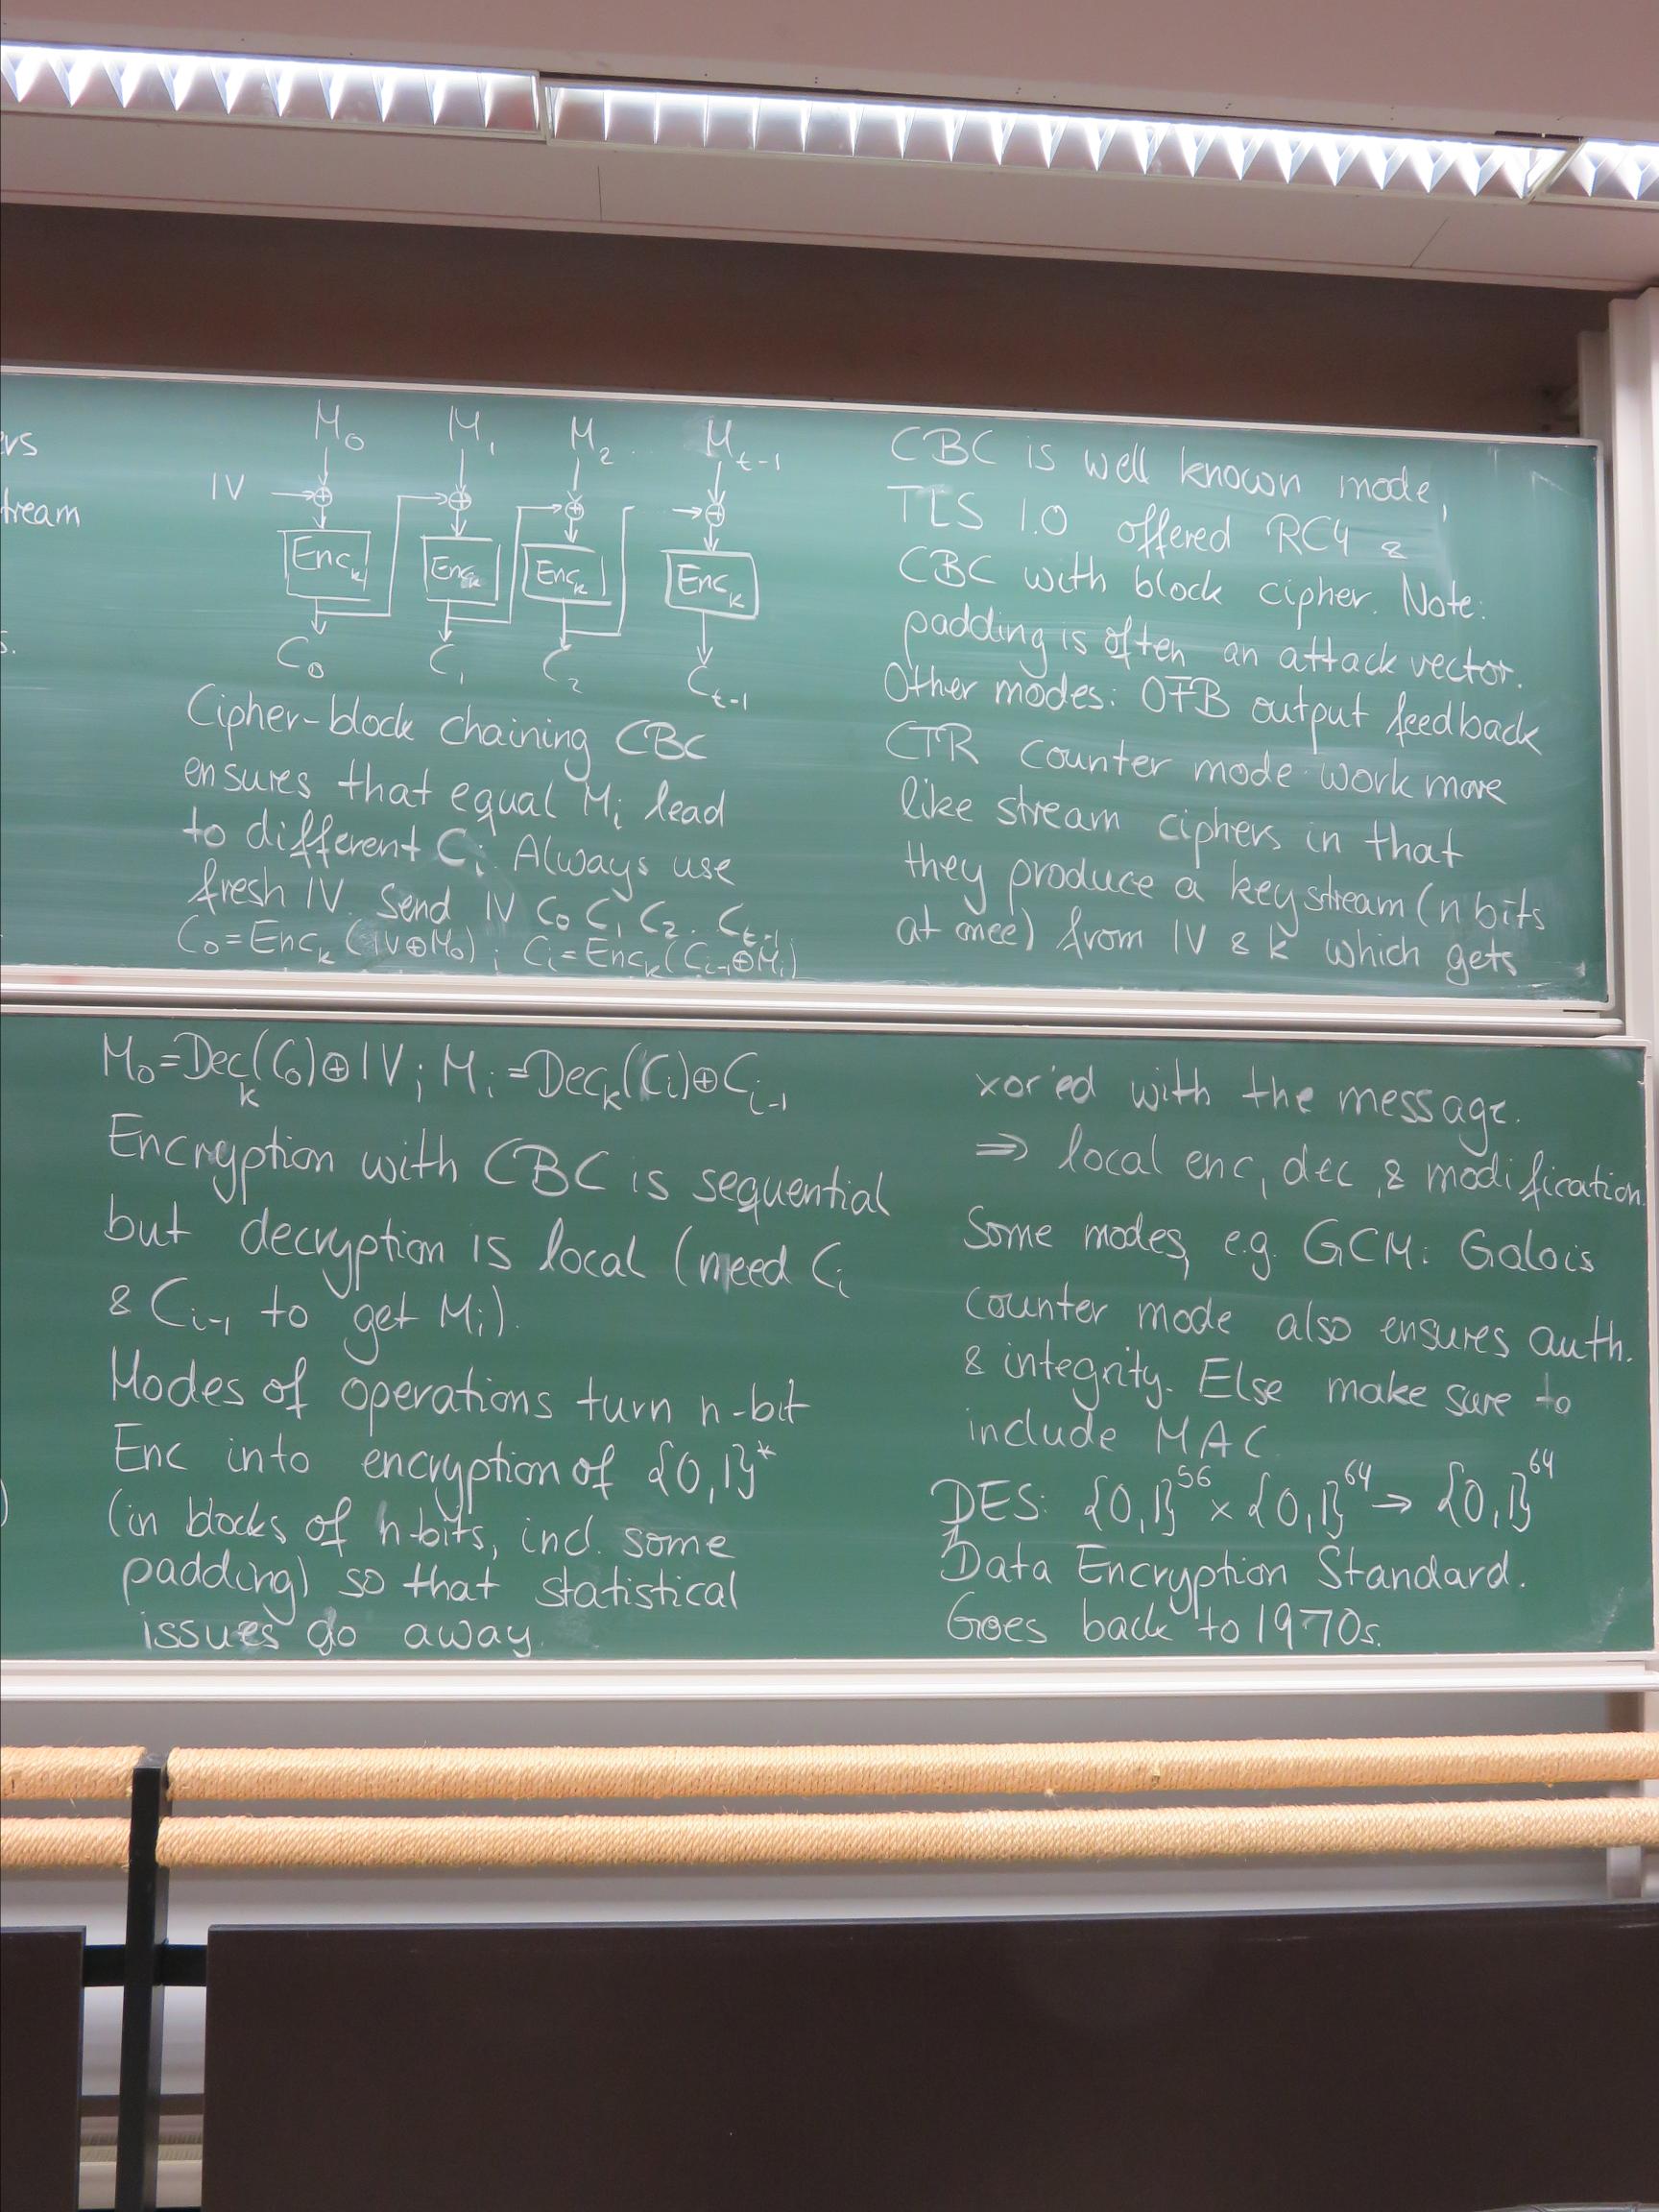 ers
tream
s.
M₀ M₁ M₂ .. M_{t-1}
IV → ⊕ ⊕ ⊕ → ⊕
Enc_k Enc_k Enc_k Enc_k
C₀ C₁ C₂ C_{t-1}
Cipher-block chaining CBC
ensures that equal M_i lead
to different C_i. Always use
fresh IV. Send IV C₀ C₁ C₂ .. C_{t-1}
C₀=Enc_k(IV⊕M₀); C_i=Enc_k(C_{i-1}⊕M_i)
CBC is well known mode,
TLS 1.0 offered RC4 &
CBC with block cipher. Note:
padding is often an attack vector.
Other modes: OFB output feedback
CTR counter mode work more
like stream ciphers in that
they produce a keystream (n bits
at once) from IV & k which gets
M₀=Dec_k(C₀)⊕IV; M_i=Dec_k(C_i)⊕C_{i-1}
Encryption with CBC is sequential
but decryption is local (need C_i
& C_{i-1} to get M_i).
Modes of operations turn n-bit
Enc into encryption of {0,1}*
(in blocks of n bits, incl. some
padding) so that statistical
issues go away.
xor'ed with the message.
⇒ local enc, dec, & modification.
Some modes, e.g. GCM: Galois
counter mode also ensures auth.
& integrity. Else make sure to
include MAC
DES: {0,1}⁵⁶ × {0,1}⁶⁴ → {0,1}⁶⁴
Data Encryption Standard.
Goes back to 1970s.